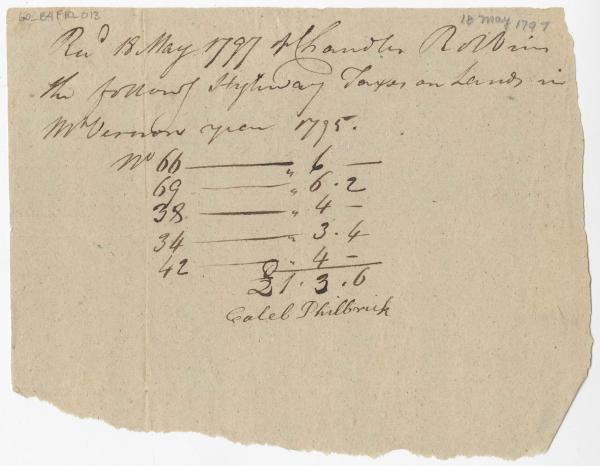 GO_BAFR2_013
18 May 1797
Recd 18 May 1797 of Chandler Robbins
the followg Highway Taxes on Lands in
Mt Vernon year 1795.
No 66 — " 6 —
69 — " 6 . 2
38 — " 4 —
34 — " 3 . 4
42 — " 4 —
£1 . 3 . 6
Caleb Philbrick